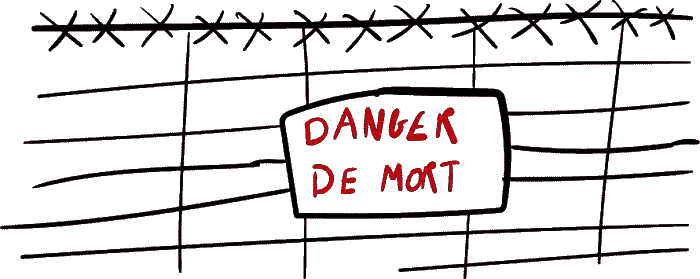 DANGER
DE MORT